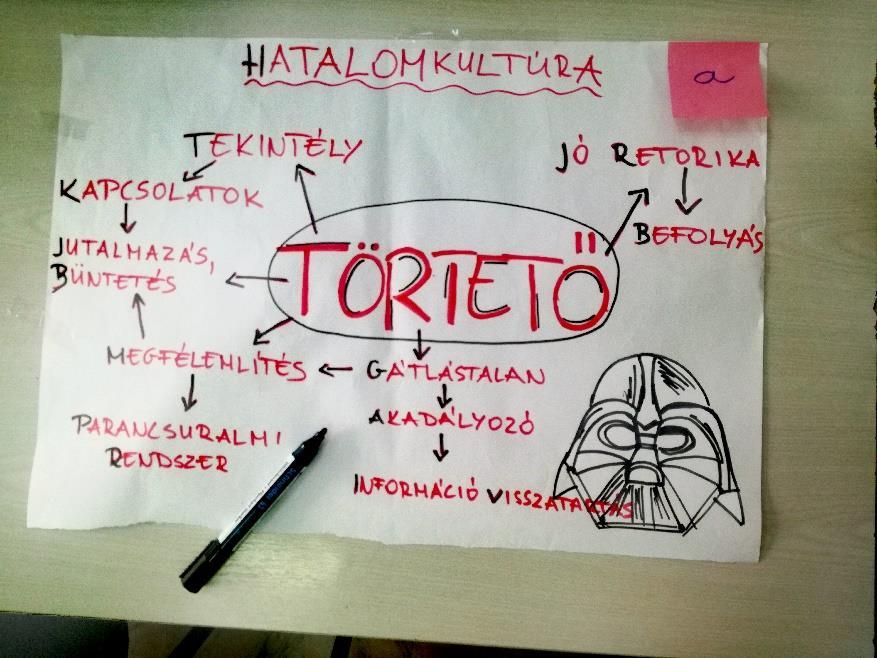 HATALOMKULTÚRA
a
TEKINTÉLY
JÓ RETORIKA
KAPCSOLATOK
BEFOLYÁS
JUTALMAZÁS,
BÜNTETÉS
TÖRTETŐ
MEGFÉLEMLÍTÉS
GÁTLÁSTALAN
AKADÁLYOZÓ
PARANCSURALMI
RENDSZER
INFORMÁCIÓ VISSZATARTÁS